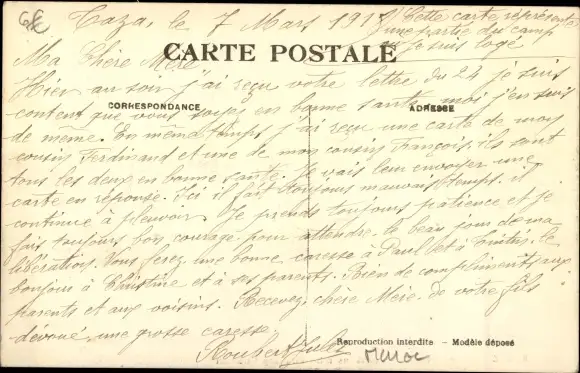 6€
Taza, le 7 Mars 191
Cette carte représente
une partie du camp
où je suis logé
CARTE POSTALE
Ma Chère Mère
Hier au soir j'ai reçu votre lettre du 24 je suis
CORRESPONDANCE
ADRESSE
content que vous soyez en bonne santé, moi j'en suis
de même. En même temps j'ai reçu une carte de mon
cousin Ferdinand et une de mon cousin François, ils sont
tous les deux en bonne santé. Je vais leur envoyer une
carte en réponse. Ici il fait toujours mauvais temps. il
continue à pleuvoir. Je prends toujours patience et je
fais toujours bon courage, pour attendre le beau jour de ma
libération. Vous ferez une bonne caresse à Paul et à le
bonjour à Christine et à ses parents. Rien de compliments aux
parents et aux voisins. Recevez, chère Mère de votre fils
dévoué, une grosse caresse.
Roubert Jules
Reproduction interdite - Modèle déposé
Maroc